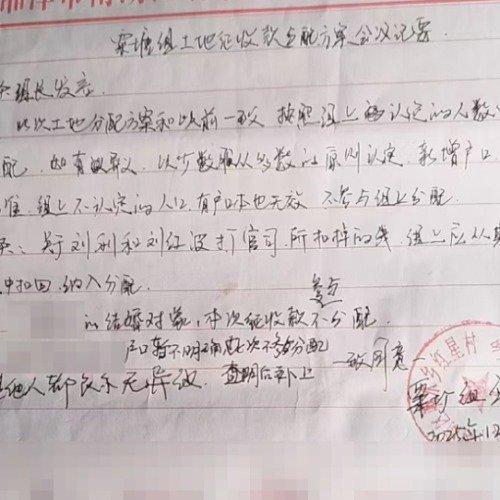 组土地征收款分配方案会议记要
组长发言
以次土地分配方案和以前一致 按照组上确认定的人数
配,如有异议,以少数服从多数的原则认定,新增户口
准,组上不认定的人口,有户口本也无效 不参与组上分配
关于刘利和刘红波打官司,所扣押的钱,组上应从
中扣回,纳入分配.
参与
的结婚对象,本次征收款不分配
户口暂不明确此次不参分配 一致同意
其他人都表示无异议. 查明后补上
红星村
组
2025年12